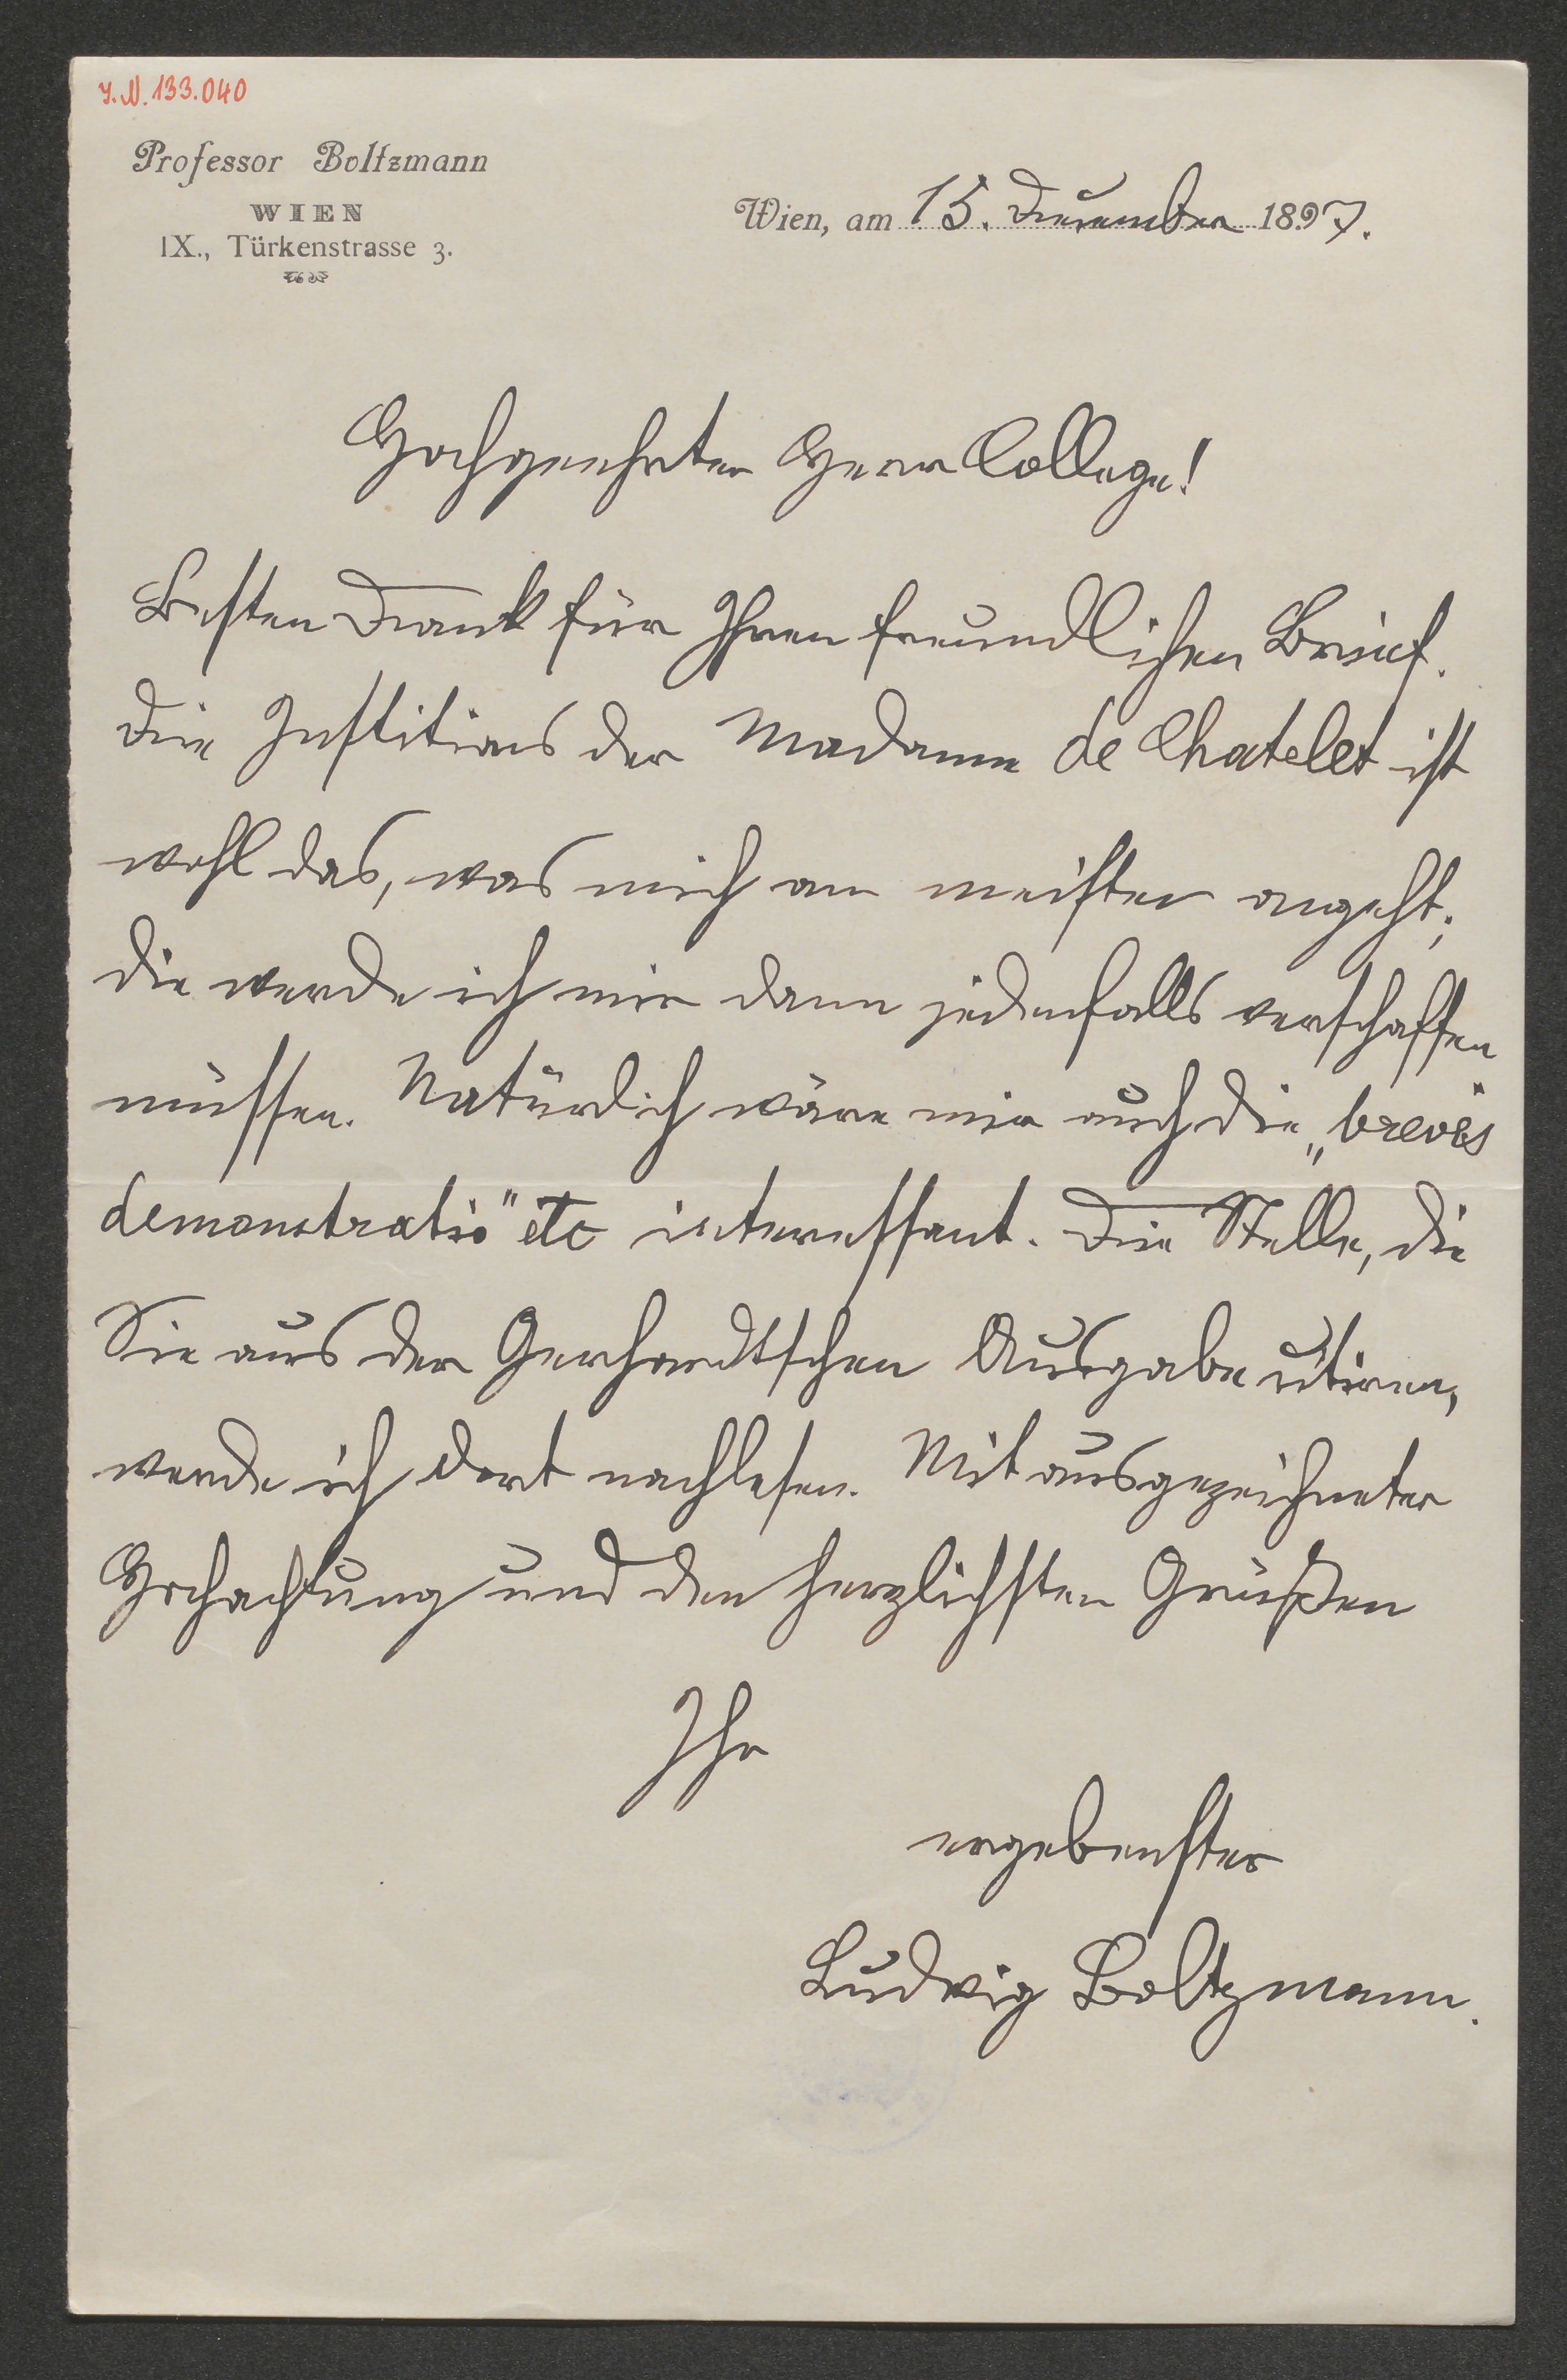 J.N. 133.040
Professor Boltzmann
WIEN
IX., Türkenstrasse 3.
Wien, am 15. December 1897.
Hochgeehrter Herr College!
Besten Dank für Ihren freundlichen Brief.
Die Institions der Madame de Chatelet ist
wohl das, was mich am meisten angeht;
die werde ich mir dann jedenfalls verschaffen
müssen. Natürlich wäre mir auch die „brevis
demonstratio" etc interessant. Die Stelle, die
Sie aus der Gerhardtschen Ausgabe citiren,
werde ich dort nachlesen. Mit ausgezeichneter
Hochachtung und den herzlichsten Grüßen
Ihr
ergebenster
Ludwig Boltzmann.